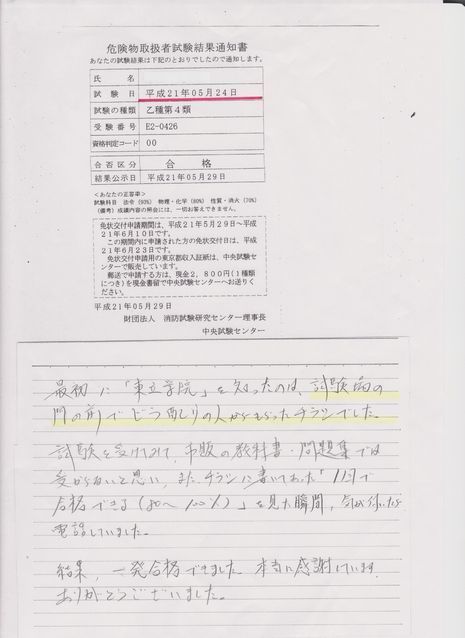 危険物取扱者試験結果通知書
あなたの試験結果は下記のとおりでしたので通知します。
氏 名
試 験 日 平成21年05月24日
試験の種類 乙種第4類
受験番号 E2-0426
資格判定コード 00
合否区分 合 格
結果公示日 平成21年05月29日
＜あなたの正答率＞
試験科目 法令 (93%) 物理・化学 (80%) 性質・消火 (70%)
(備考) 成績内容の照会には、一切お答えできません。
免状交付申請期間は、平成21年5月29日〜平成
21年6月10日です。
この期間内に申請された方の免状交付日は、平成
21年6月23日です。
免状交付申請用の東京都収入証紙は、中央試験セ
ンターで販売しています。
郵送で申請する方は、現金2,800円(1種類
につき)を現金書留で中央試験センターへお送りく
ださい。
平成21年05月29日
財団法人 消防試験研究センター理事長
中央試験センター
最初に「東立学院」を知ったのは、試験場の
門の前でビラ配りの人からもらったチラシでした。
試験を受けてみて、市販の教科書・問題集では
受からないと思い、また、チラシに書いてあった「1日で
合格できる(80〜100%)」を見た瞬間、気が付いたら
電話していました。
結果、一発合格できました。本当に感謝しています。
ありがとうございました。